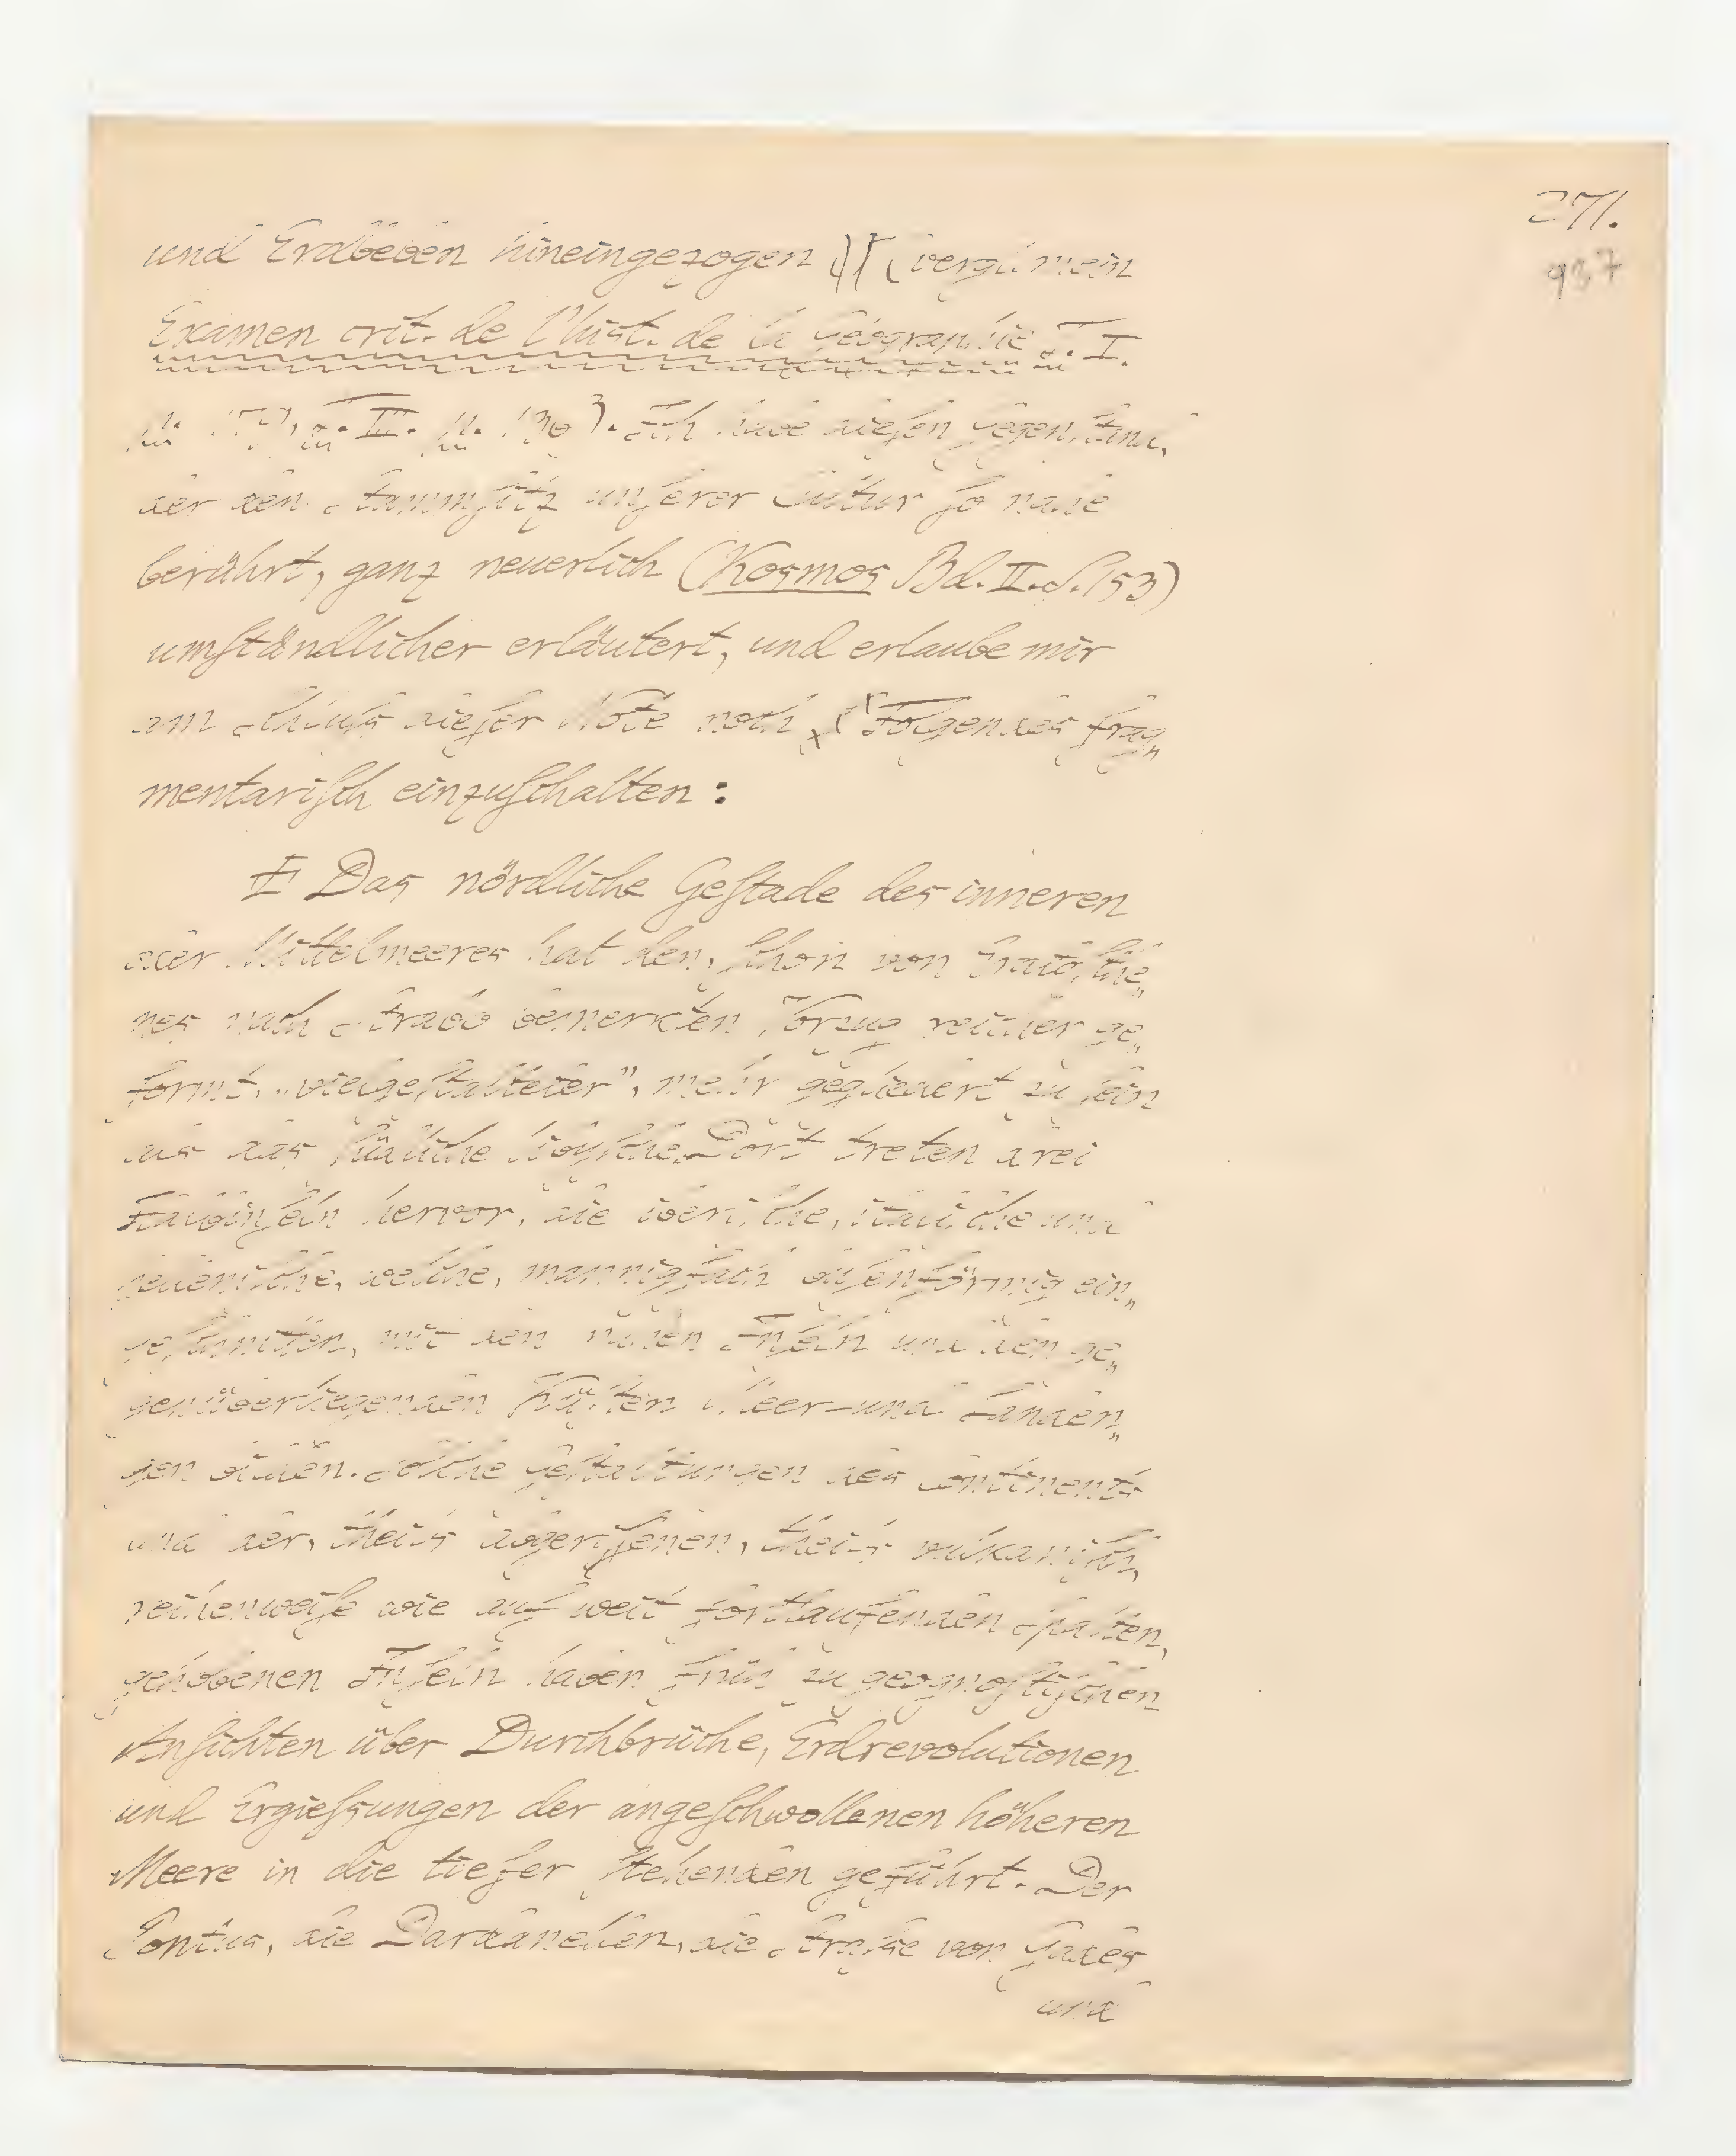 271.
937
und Erdbeben hineingezogen (vergl. mein
Examen crit. de l'hist. de la Géographie T. I.
T. III. p. 136). Ich habe dieſen Gegenſtand,
der den Stammſitz unſerer Cultur ſo nahe
berührt, ganz neuerlich (Kosmos Bd. II. S. 153)
umſtändlicher erläutert, und erlaube mir
am Schluſs dieſer Note noch Folgendes frag„
mentariſch einzuſchalten:
Das nördliche Geſtade des inneren
oder Mittelmeeres hat den, ſchon von Eratoſthe„
nes nach Strabo bemerkten Vorzug reicher ge„
formt, „vielgeſtalteter", mehr gegliedert zu ſein
als das ſüdliche libyſche. Dort treten drei
Halbinſeln hervor, die iberiſche, italiſche und
helleniſche, welche, mannigfach buſenförmig ein„
geſchnitten, mit den nahen Inſeln und den ge„
genüberliegenden Küſten Meer- und Landen„
gen bilden. Solche Geſtaltungen des Continents
und der, theils abgeriſſenen, theils vulkaniſch,
reihenweiſe wie auf weit fortlaufenden Spalten,
gehobenen Inſeln haben früh zu geognoſtiſchen
Anſichten über Durchbrüche, Erdrevolutionen
und Ergieſsungen der angeſchwollenen höheren
Meere in die tiefer ſtehenden geführt. Der
Pontus, die Dardanellen, die Straſse von Gades
und